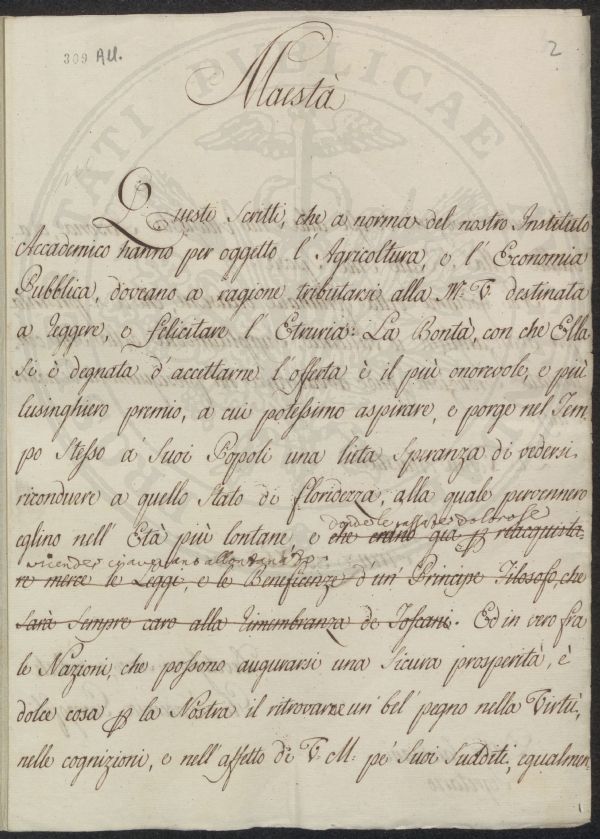 309 All.
2
Maestà
Questi Scritti, che a norma del nostro Instituto
Accademico hanno per oggetto l'Agricoltura, e l'Economia
Pubblica, doveano a ragione tributarsi alla M. V. destinata
a reggere, e felicitare l'Etruria: La Bontà, con che Ella
si è degnata d'accettarne l'offerta è il più onorevole, e più
lusinghiero premio, a cui potessimo aspirare, e porge nel Tem-
po stesso a' Suoi Popoli una lieta Speranza di vedersi
ricondurre a quello Stato di floridezza, alla quale pervennero
donde le passate dolorose
eglino nell'Età più lontane, e che erano già p riacquista-
vicende ci aveano allontanati
re mercè le Leggi, e le Beneficenze d'un Principe Filosofo, che
sarà sempre caro alla rimembranza de Toscani. Ed in vero fra
le Nazioni, che possono augurarsi una Sicura prosperità, è
dolce cosa p la Nostra il ritrovarne un bel pegno nella Virtù,
nelle cognizioni, e nell'affetto di V. M. pe' Suoi Sudditi, egualmen-
1